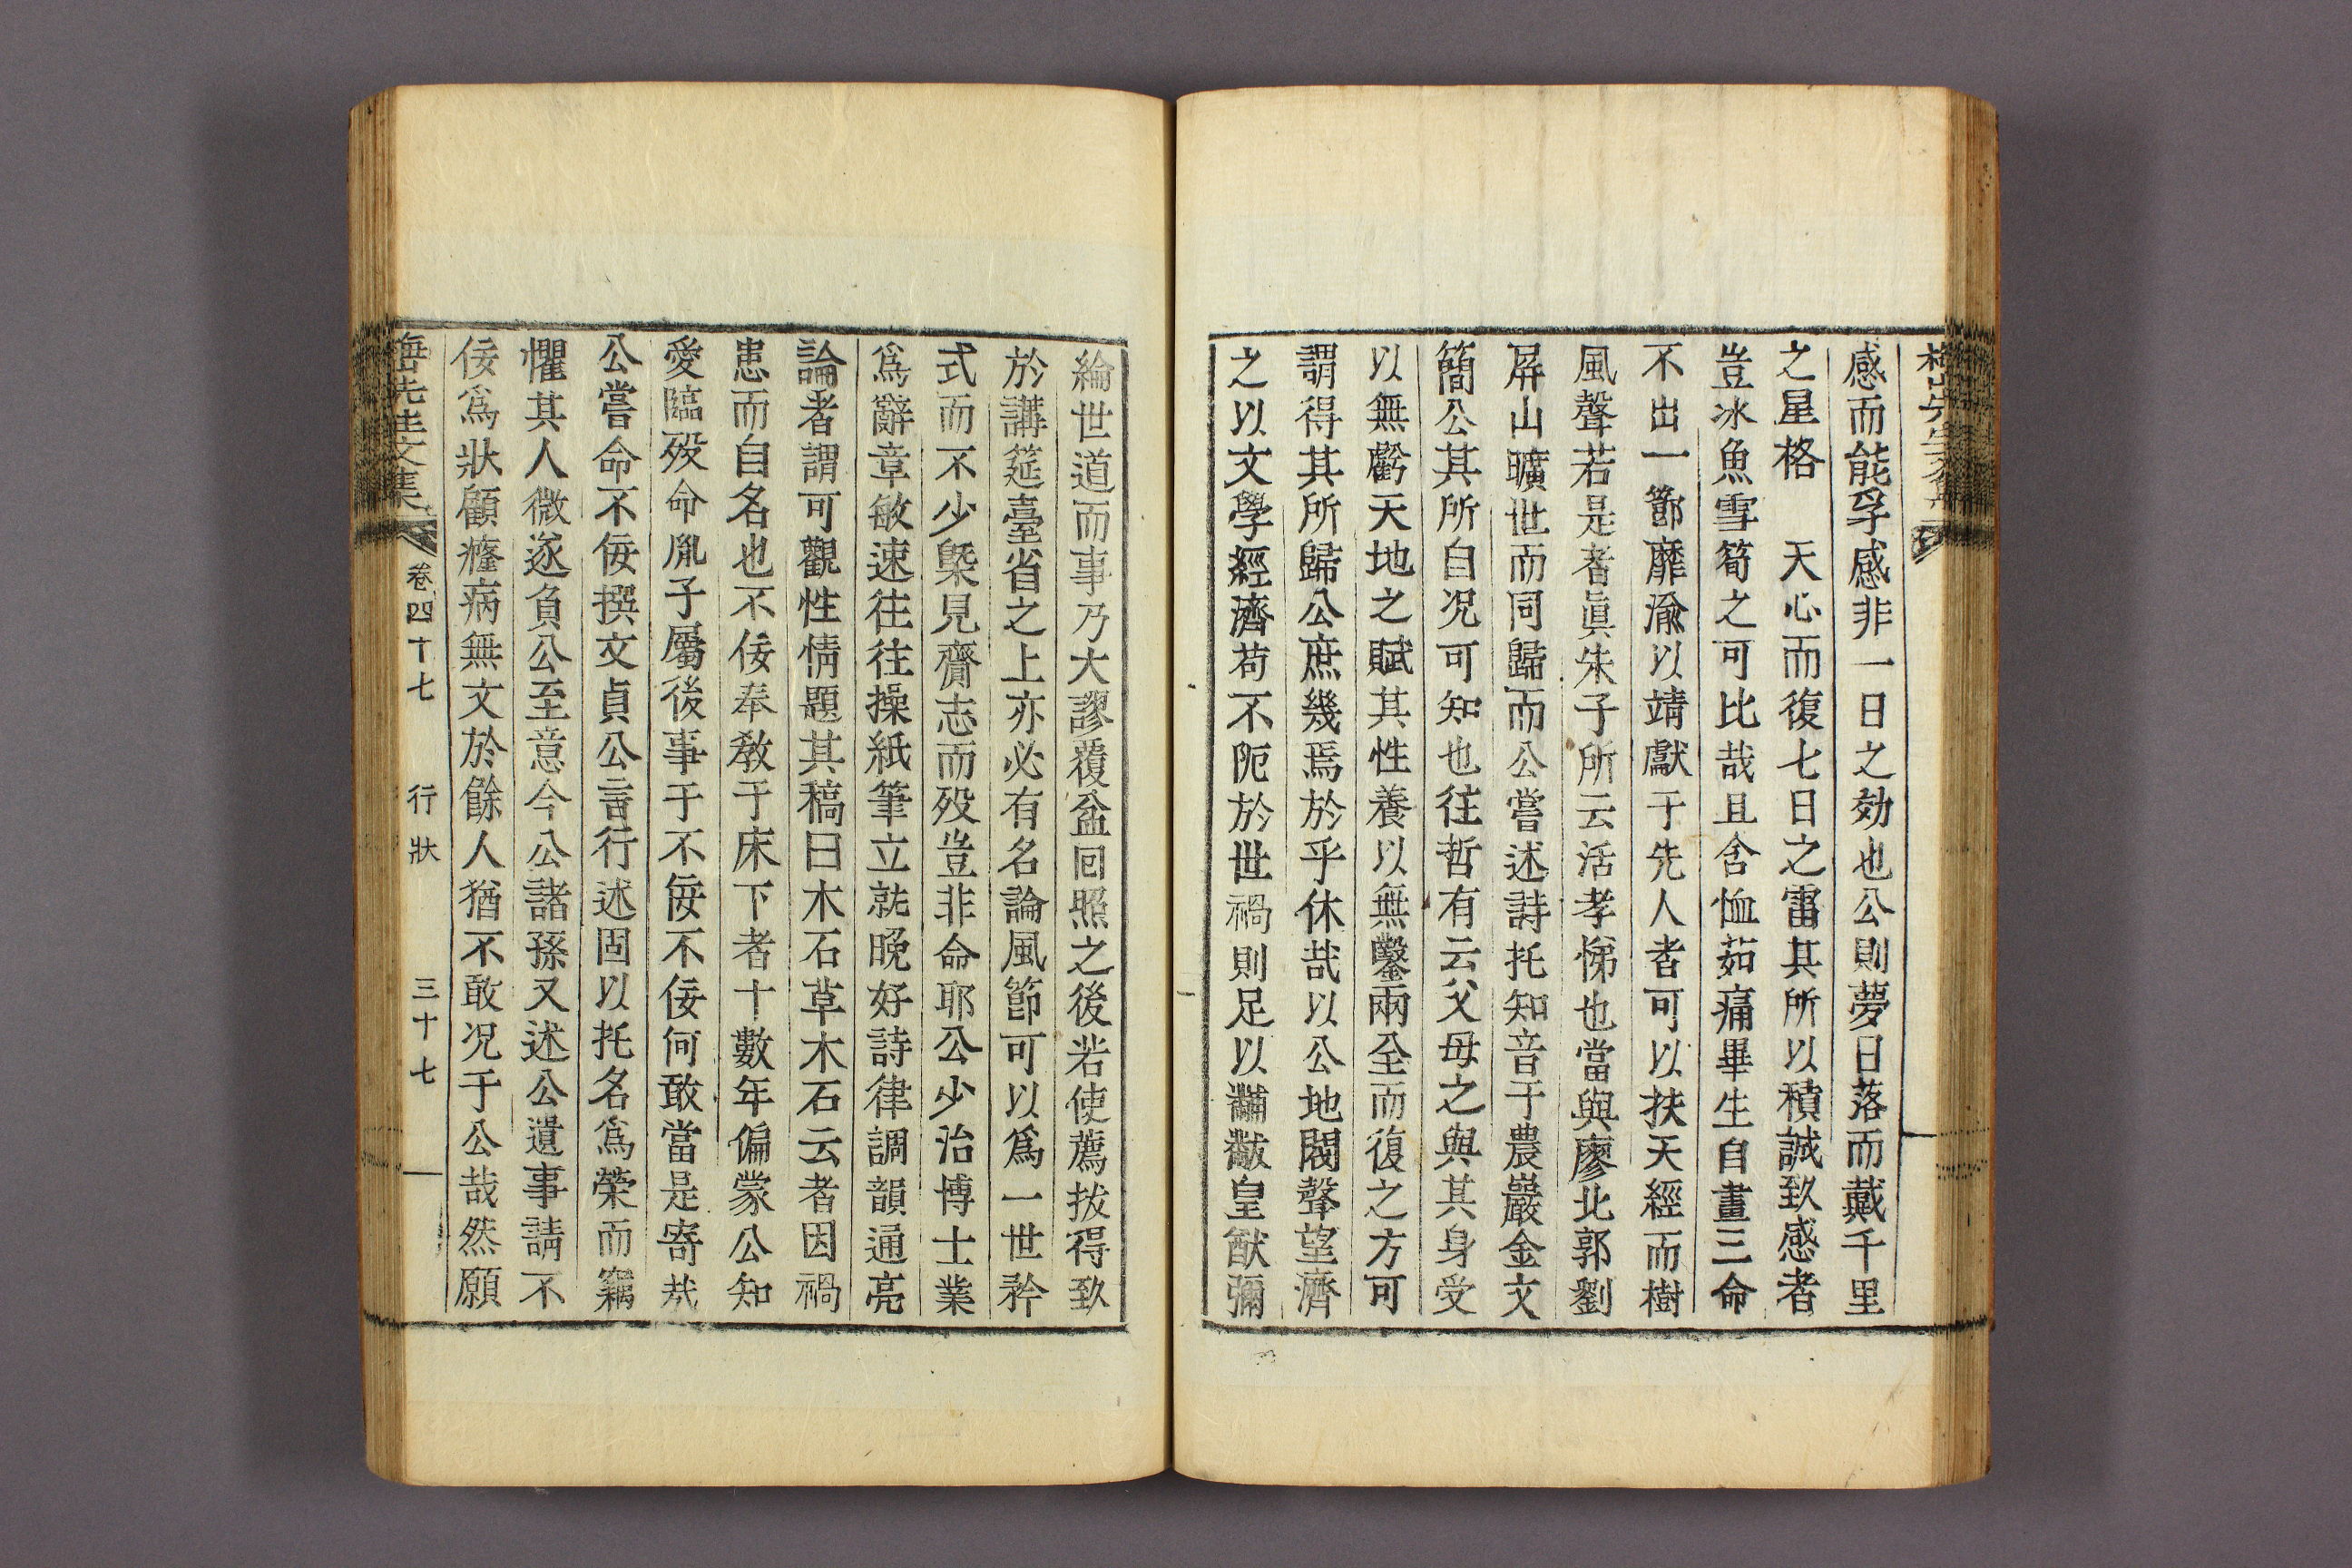 感而能孚感非一日之効也公則夢日落而戴千里
之星格　天心而復七日之雷其所以積誠致感者
豈冰魚雪筍之可比哉且含恤茹痛畢生自畫三命
不出一節靡渝以靖獻于先人者可以扶天經而樹
風聲若是者眞朱子所云活孝悌也當與廖北郭劉
屛山曠世而同歸而公嘗述詩托知音于農巖金文
簡公其所自况可知也往哲有云父母之與其身受
以無虧天地之賦其性養以無鑿兩全而復之方可
謂得其所歸公庶幾焉於乎休哉以公地閥聲望濟
之以文學經濟苟不阨於世禍則足以黼黻皇猷彌
綸世道而事乃大謬覆盆回照之後若使薦拔得致
於講筵臺省之上亦必有名論風節可以爲一世矜
式而不少槩見齎志而歿豈非命耶公少治博士業
爲辭章敏速往往操紙筆立就晩好詩律調韻通亮
論者謂可觀性情題其稿曰木石草木石云者因禍
患而自名也不佞奉敎于床下者十數年偏蒙公知
愛臨歿命胤子屬後事于不佞不佞何敢當是寄哉
公嘗命不佞撰文貞公言行述固以托名爲榮而竊
懼其人微逐負公至意今公諸孫又述公遺事請不
佞爲狀顧癃病無文於餘人猶不敢况于公哉然願
梅山先生文集　卷四十七　行狀　三十七